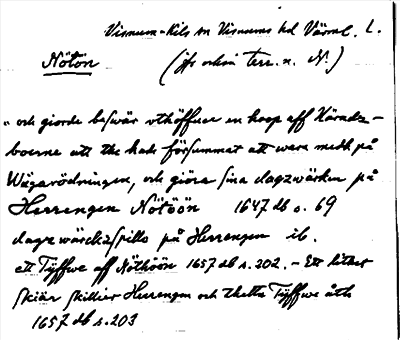 Visnum-Kils sn Visnums hd Värml. L.
Nötön (jfr också Terr. n. N.)
"och giorde beswär vthöffuer en hoop aff Häradz-
boerne att the hade försummat att wara medh på
Wägarödningen, och giöra sina dagzwärken på
Herrengen Nötöön 1647 db s. 69
dagzwärckzspille på Herrengen ib.
ett Tÿffwe aff Nöthöön 1657 db s. 202. - Ett litet
skiär skillier Herrengen och thetta Tÿffwe åth
1657 db s. 203